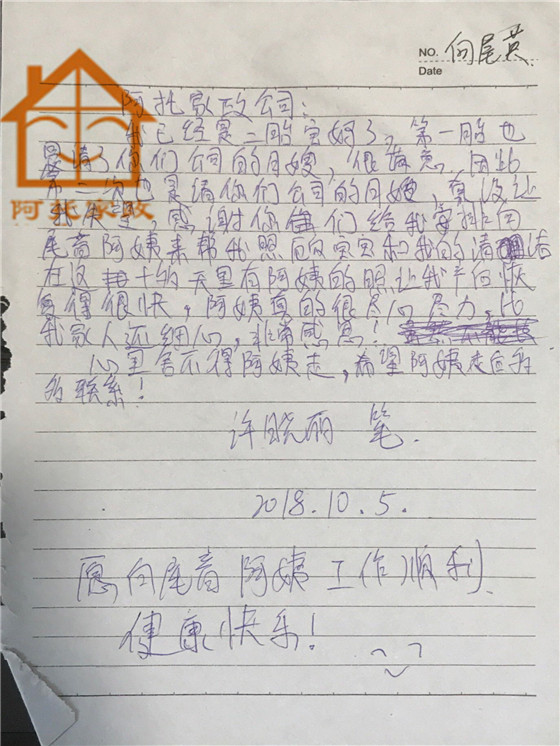 NO. 向尾英
Date
阿托家政公司:
我已经是二胎宝妈了,第一胎也
是请了你们公司的月嫂,很满意,因此
第二次也是请你们公司的月嫂,真没让
我失望,感谢你们给我安排向
尾音阿姨来帮我照顾宝宝和我的
在这十的天里有阿姨的照让我产后恢
复得很快,阿姨真的很尽心尽力,比
我家人还细心,非常感恩!
心里舍不得阿姨走,希望阿姨走后
的联系!
许晓丽 笔.
2018.10.5.
愿向尾音阿姨工作顺利
健康快乐!
阿托家政